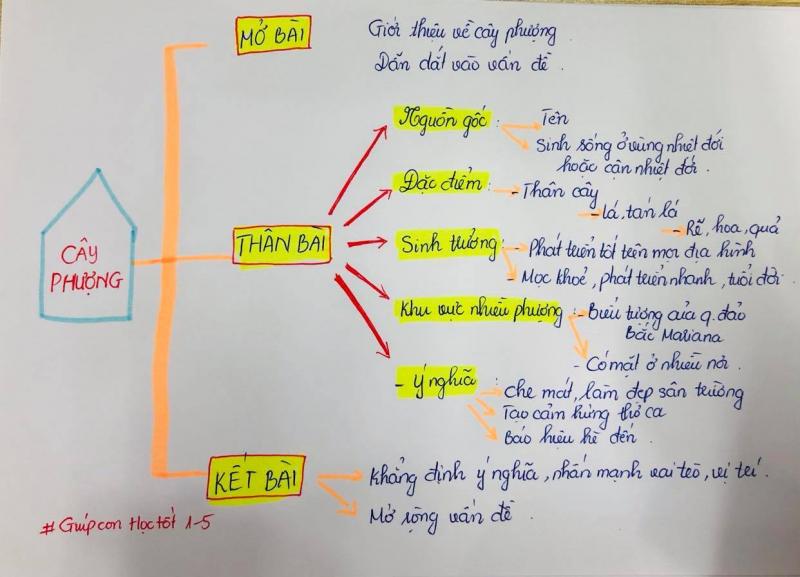 MỞ BÀI
Giới thiệu về cây phượng
Dẫn dắt vào vấn đề.
CÂY
PHƯỢNG
THÂN BÀI
Nguồn gốc:
Tên
Sinh sống ở vùng nhiệt đới
hoặc cận nhiệt đới.
Đặc điểm:
- Thân cây
- lá, tán lá
- Rễ, hoa, quả
Sinh trưởng:
- Phát triển tốt trên mọi địa hình
- Mọc khoẻ, phát triển nhanh, tuổi đời.
Khu vực nhiều phượng:
- Biểu tượng của q. đảo
Bắc Mariana
- Có mặt ở nhiều nơi.
- Ý nghĩa:
che mát, làm đẹp sân trường
Tạo cảm hứng thơ ca
Báo hiệu hè đến.
KẾT BÀI
Khẳng định ý nghĩa, nhấn mạnh vai trò, vị trí.
Mở rộng vấn đề.
# Giúp con Học tốt 1-5